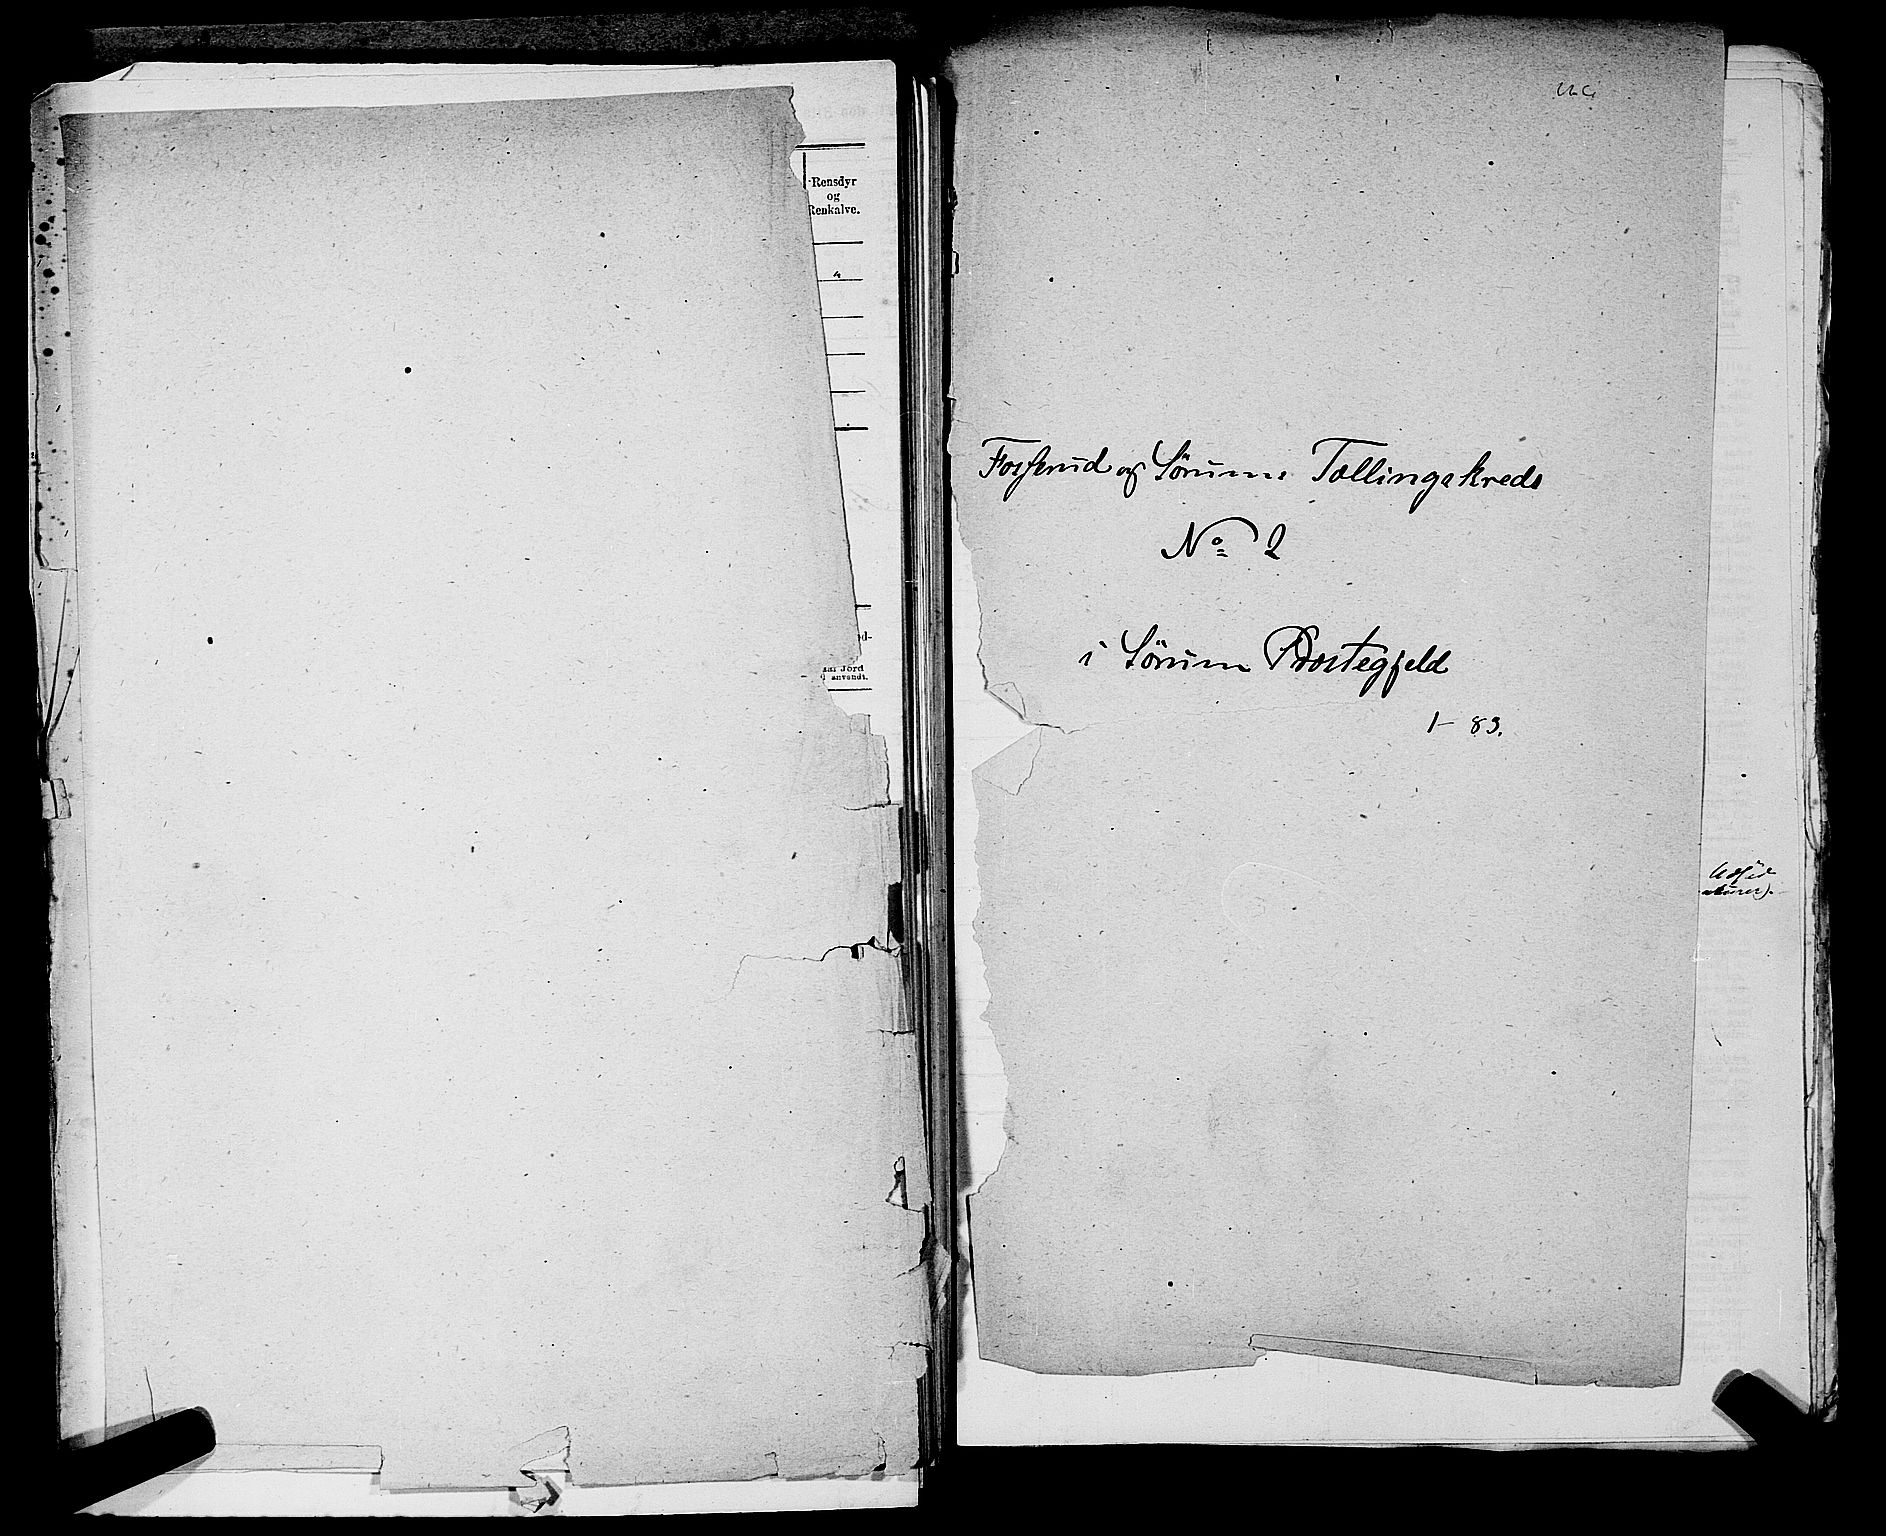 Rensdyr
og
Renkalve.
4
d-
aar Jord
anvendt.
Fosserud og Sørums Tællingskreds
No 2
i Sørum Præstegjeld
1-83.